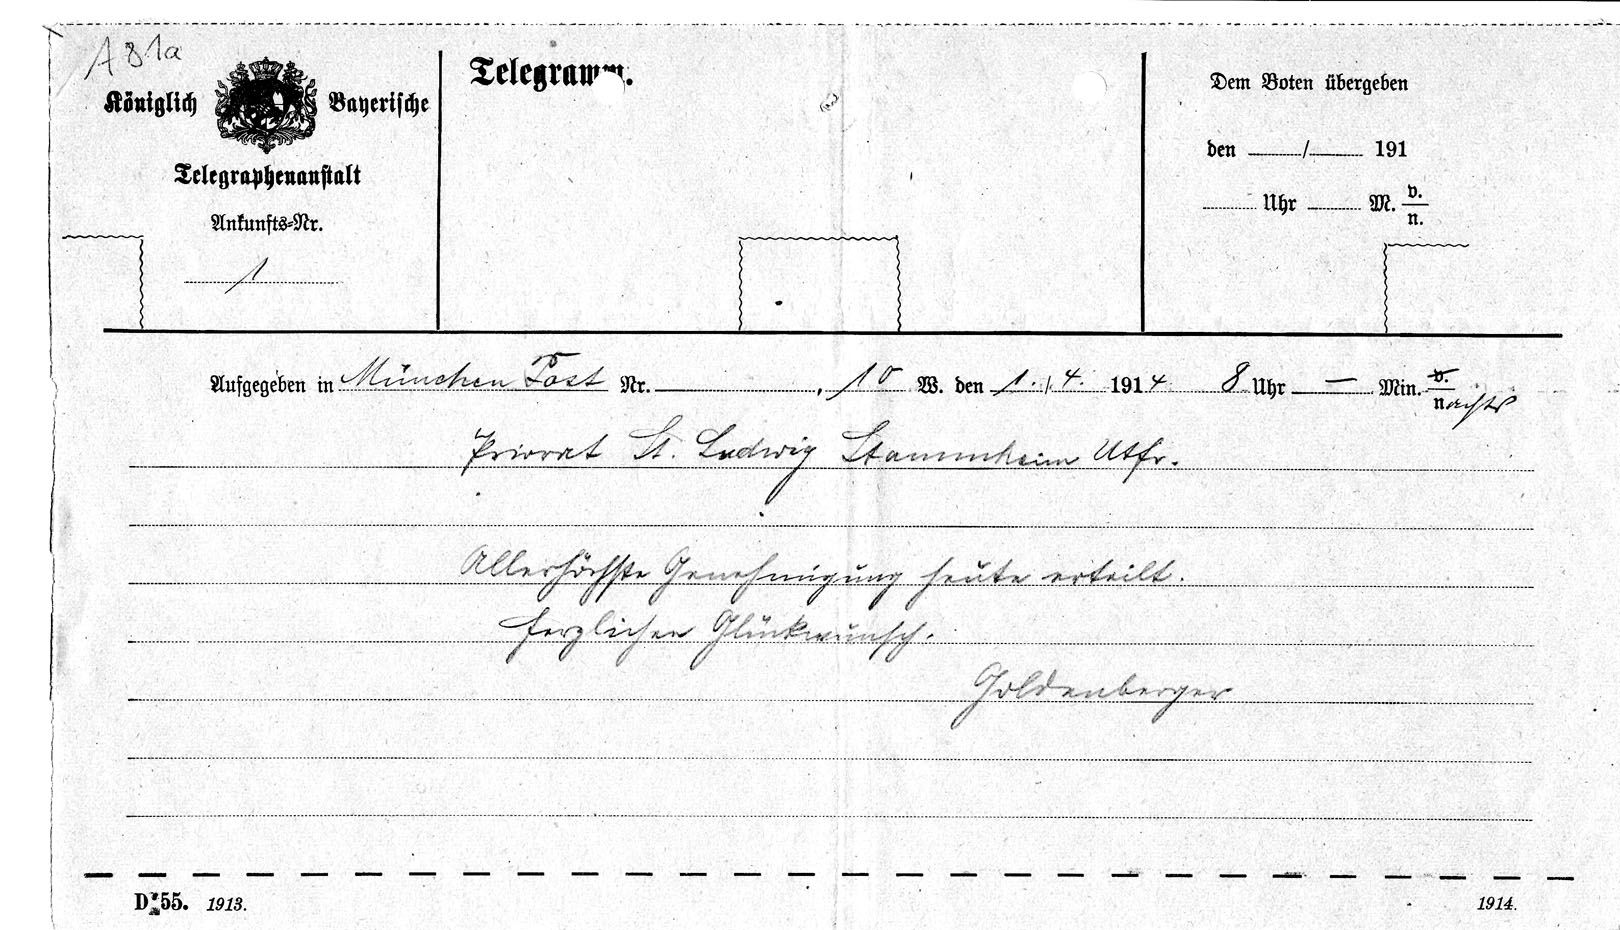 A 81a
Königlich Bayerische
Telegraphenanstalt
Ankunfts=Nr.
1
Telegramm.
Dem Boten übergeben
den / 191
Uhr M. v.
n.
Aufgegeben in München Post Nr. , 10 W. den 1. / 4. 1914 8 Uhr — Min. v.
nachts
Priorat St. Ludwig Stammheim Utfr.
Allerhöchste Genehmigung heute erteilt.
Herzlichen Glückwunsch.
Goldenberger
D 55. 1913.
1914.